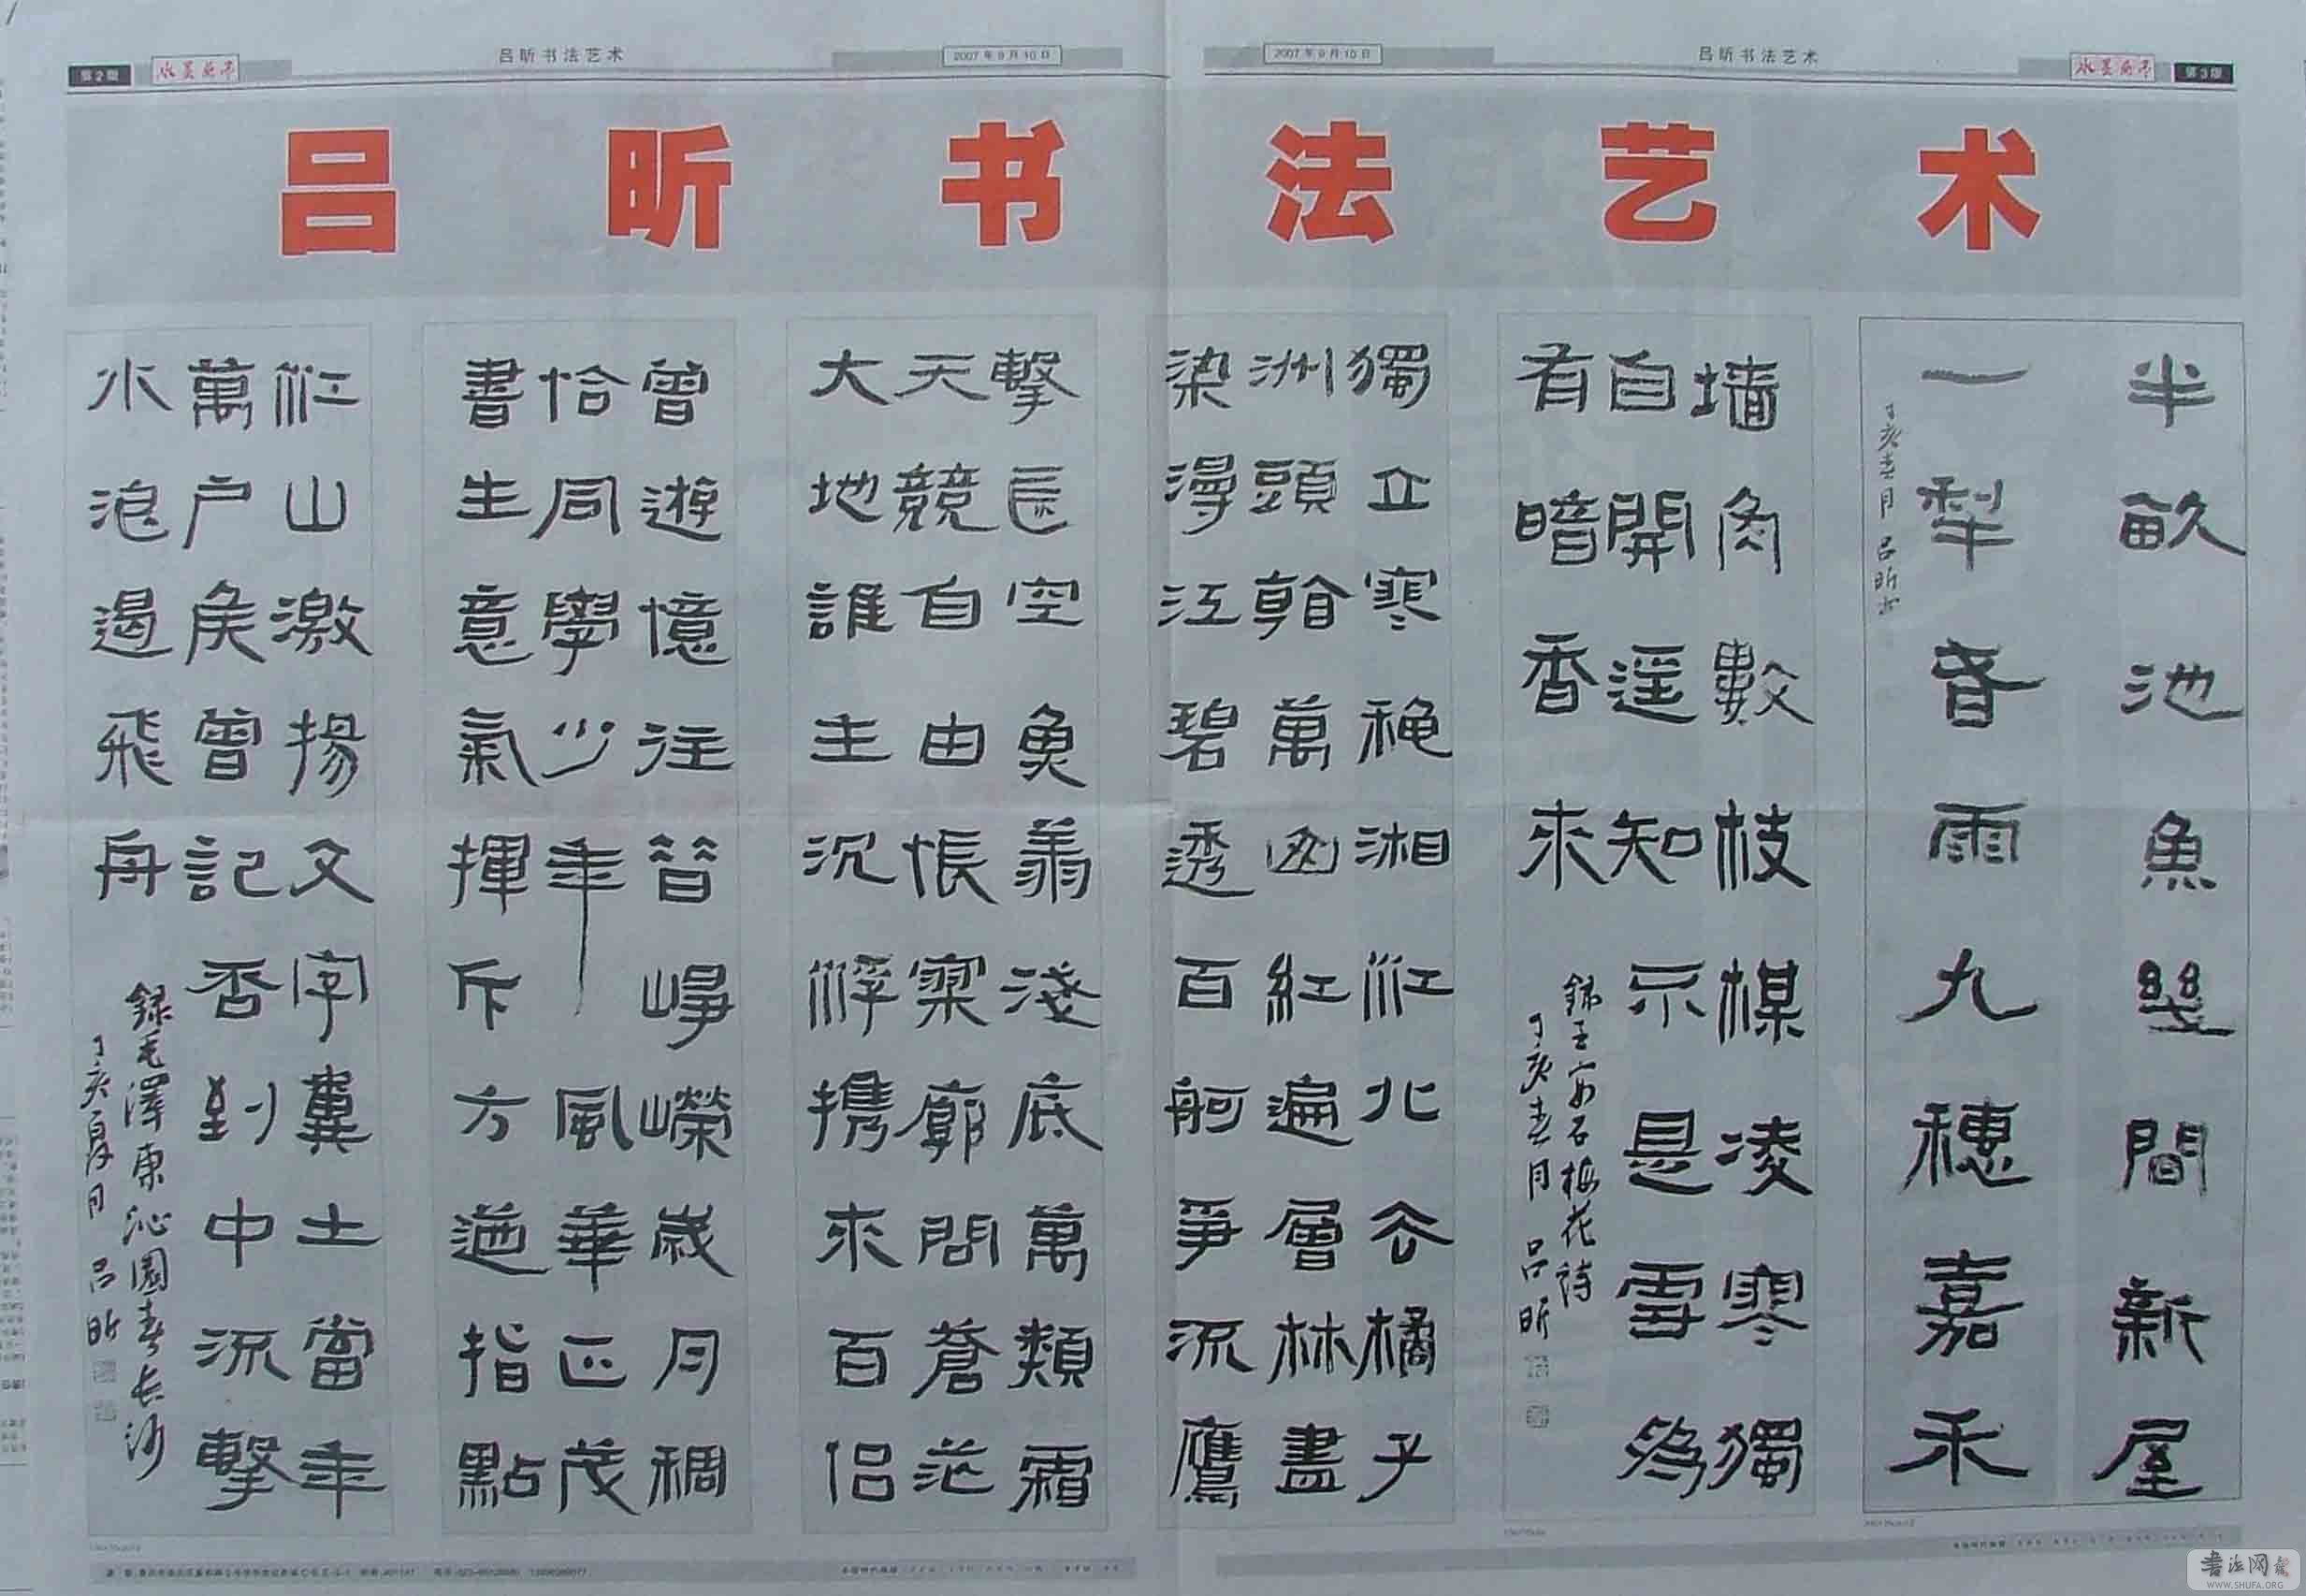 第2版
水墨丽市
吕昕书法艺术
2007年9月10日
2007年9月10日
吕昕书法艺术
第3版
吕昕书法艺术
半畝池魚幾間新屋
一犁春雨九穗嘉禾
丁亥春月 呂昕书
墙角數枝楳凌寒獨
自開遥知不是雪為
有暗香來
錄王安石梅花詩
丁亥春月 呂昕
獨立寒穐湘江北去橘子
洲頭看萬山紅遍層林盡
染漫江碧透百舸爭流鷹
擊長空魚翔淺底萬類霜
天競自由悵寥廓問蒼茫
大地誰主沉浮携來百侣
曾遊憶往昔崢嶸歲月稠
恰同學少年風華正茂
書生意氣揮斥方遒指點
江山激揚文字糞土當年
萬户矦曾記否到中流擊
水浪遏飛舟
錄毛澤東沁園春長沙
丁亥夏月 呂昕
书法网
WWW.SHUFA.ORG